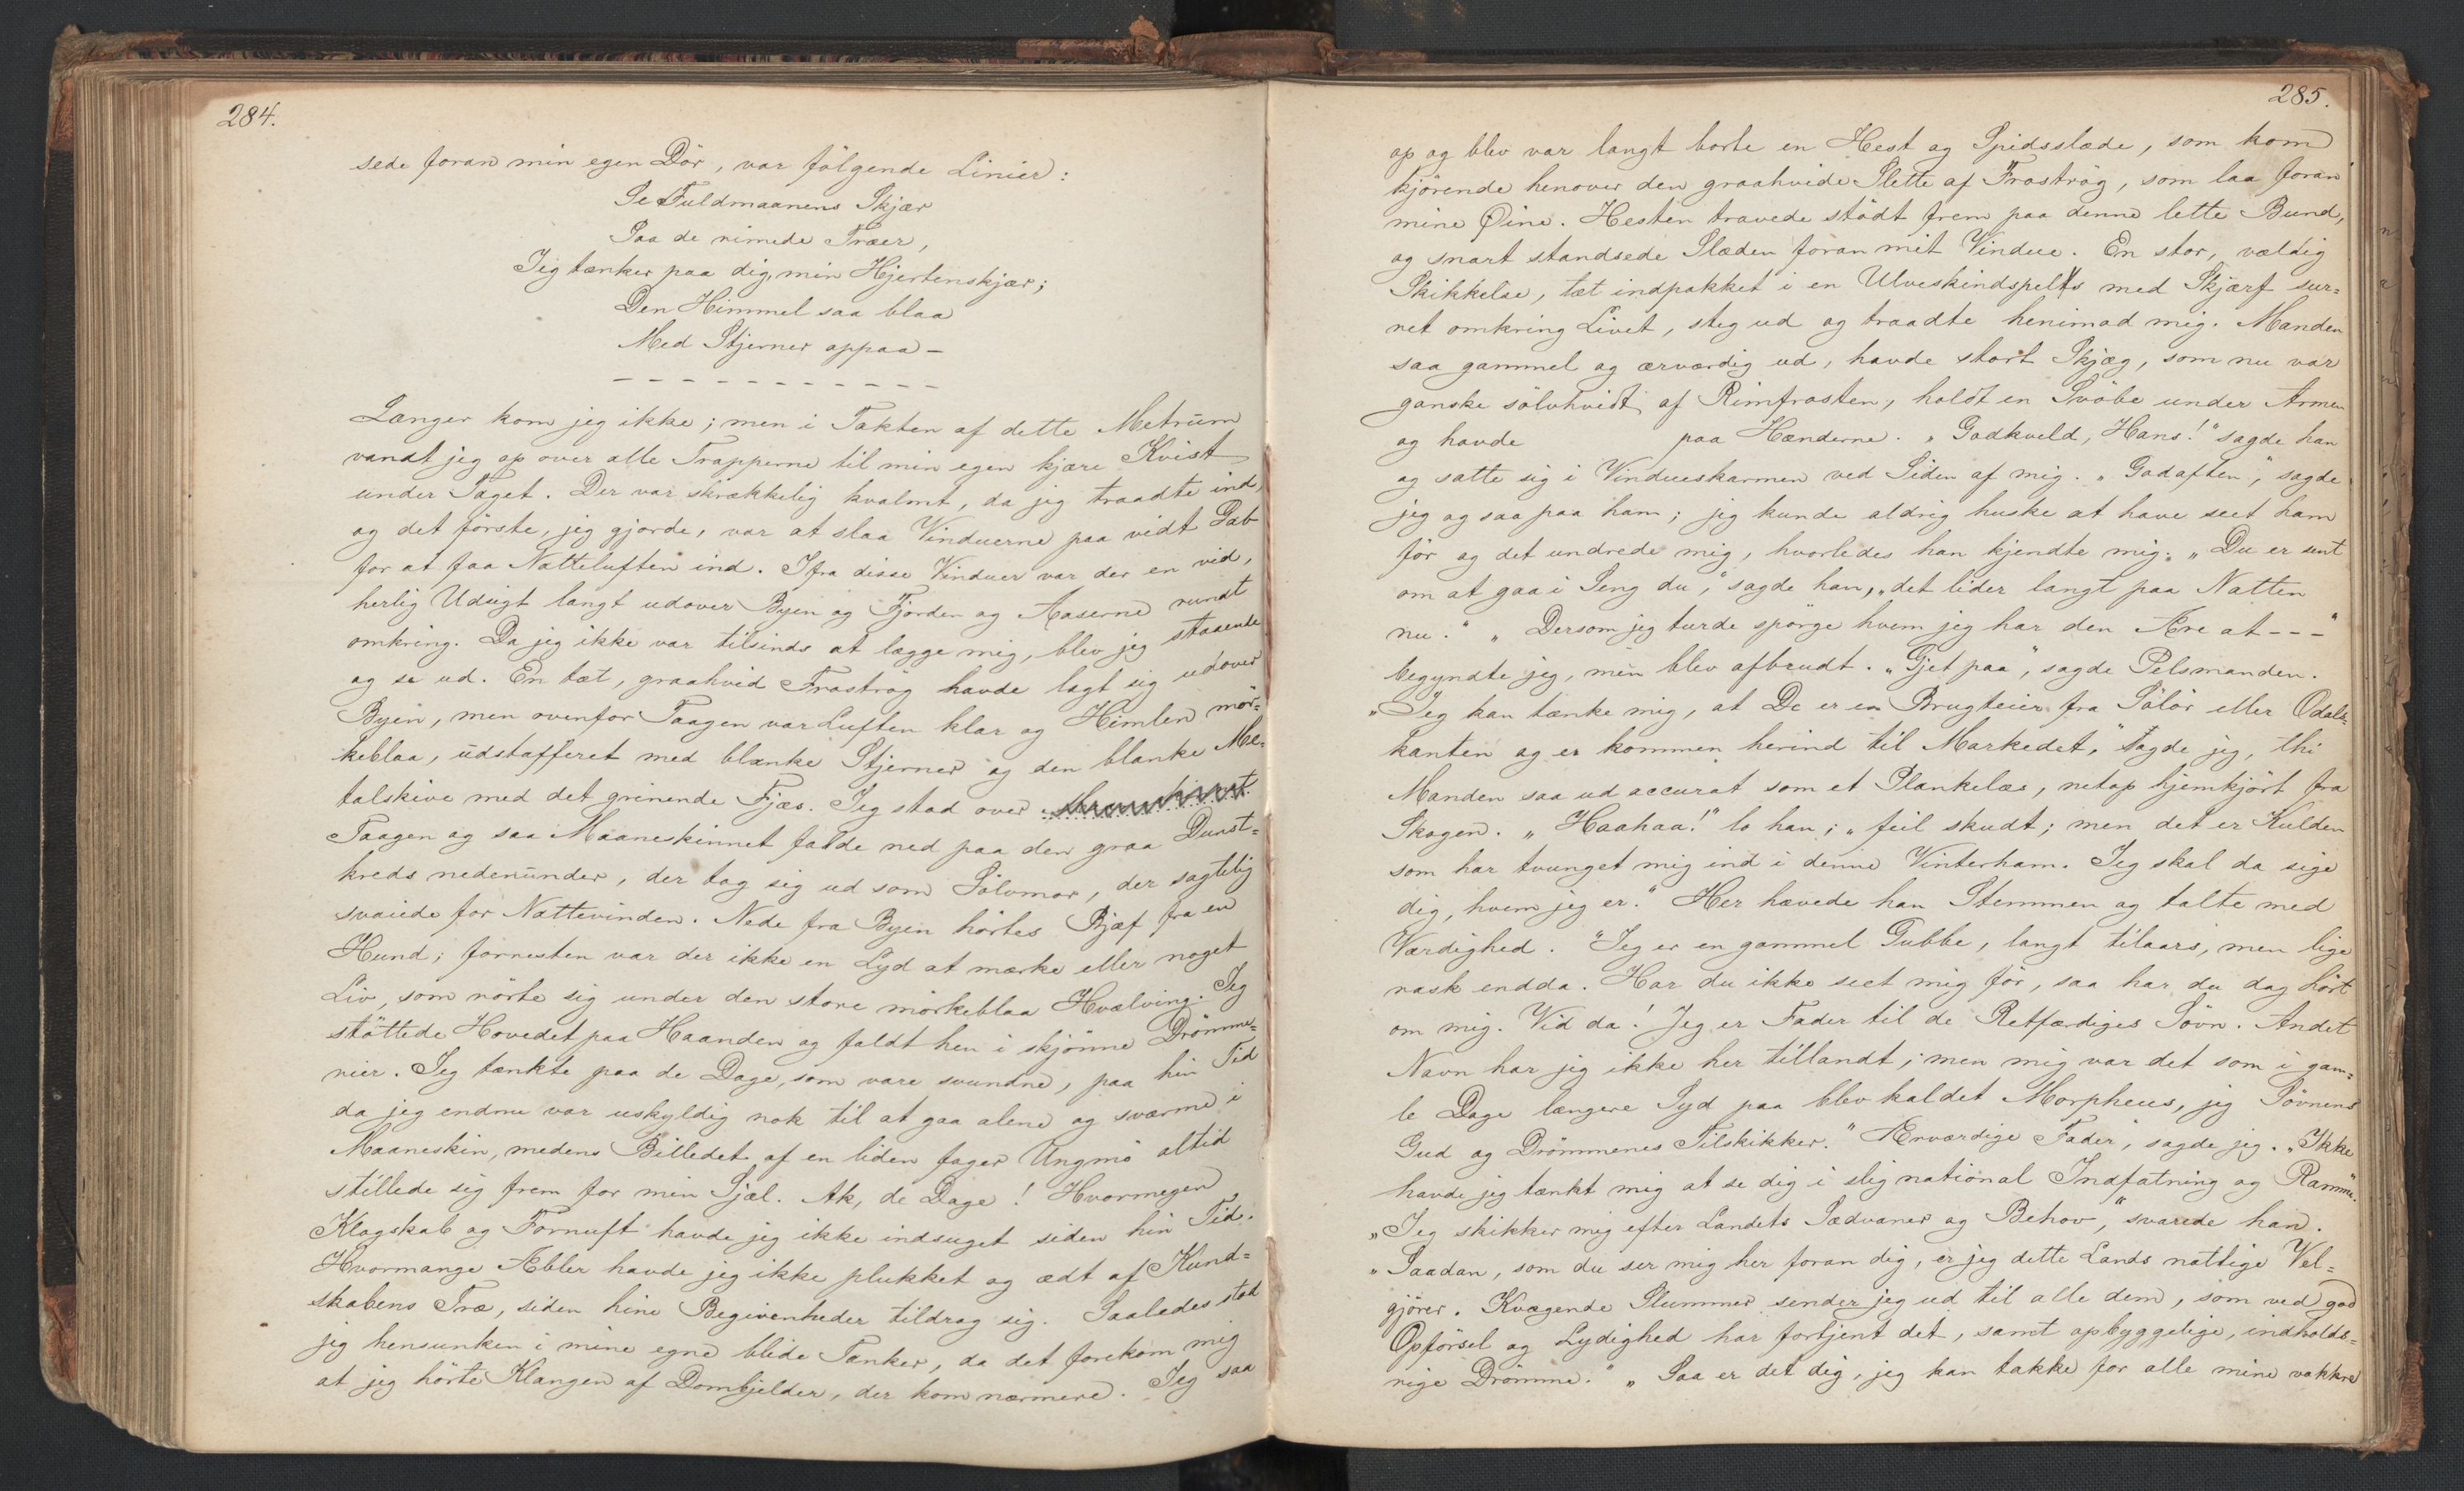 284.
sede foran min egen Dör, var fölgende Linier:
Se Fuldmaanens Skjær
Paa de rimede Træer,
Jeg tænker paa dig, min Hjertenskjær;
Den Himmel saa blaa
Med Stjerner oppaa –
– – – – – – – – – – –
Længer kom jeg ikke; men i Takten af dette Metrum
vandt jeg op over alle Trapperne til min egen kjære Kvist
under Taget. Der var skrækkelig kvalmt, da jeg traadte ind,
og det förste, jeg gjorde, var at slaa Vinduerne paa vidt Gab
for at faa Natteluften ind. Ifra disse Vinduer var der en vid,
herlig Udsigt langt udover Byen og Fjorden og Aaserne rundt
omkring. Da jeg ikke var tilsinds at lægge mig, blev jeg staaende
og se ud. En tæt, graahvid Froströg havde lagt sig udover
Byen, men ovenfor Taagen var Luften klar og Himlen mör=
keblaa, udstafferet med blanke Stjerner og den blanke Me=
talskive med det grinende Fjæs. Jeg stod over
Taagen og saa Maaneskinnet falde ned paa den graa Dunst=
kreds nedenunder, der tog sig ud som Sölvmor, der sagtelig
svaiede for Nattevinden. Nede fra Byen hörtes Bjæf fra en
Hund; forresten var der ikke en Lyd at mærke eller noget
Liv, som rörte sig under den store mörkeblaa Hvælving. Jeg
stöttede Hovedet paa Haanden og faldt hen i skjönne Drömme=
rier. Jeg tænkte paa de Dage, som vare svundne, paa hin Tid
da jeg endnu var uskyldig nok til at gaa alene og sværme i
Maaneskin, medens Billedet af en liden fager Ungmö altid
stillede sig frem for min Sjæl. Ak, de Dage! Hvormegen
Klogskab og Fornuft havde jeg ikke indsuget siden hin Tid.
Hvormange Æbler havde jeg ikke plukket og ædt af Kund=
skabens Træ, siden hine Begivenheder tildrog sig. Saaledes stod
jeg hensunken i mine egne blide Tanker, da det forekom mig
at jeg hörte Klangen af Dombjelder, der kom nærmere. Jeg saa
285.
op og blev var langt borte en Hest og Spidsslæde, som kom
kjörende henover den graahvide Slette af Froströg, som laa foran
mine Øine. Hesten travede stödt frem paa denne lette Bund,
og snart standsede Slæden foran mit Vindue. En stor, vældig
Skikkelse, tæt indpakket i en Ulveskindspels med Skjærf sur=
ret omkring Livet, steg ud og traadte henimod mig. Manden
saa gammel og ærværdig ud, havde stort Skjæg, som nu var
ganske sölvhvidt af Rimfrosten, holdt en Svöbe under Armen
og havde paa Hænderne. „Godkveld, Hans!" sagde han
og satte sig i Vindueskarmen ved Siden af mig. „Godaften", sagde
jeg og saa paa ham; jeg kunde aldrig huske at have seet ham
för og det undrede mig, hvorledes han kjendte mig. „Du er sent
om at gaa i Seng du," sagde han, „det lider langt paa Natten
nu." „Dersom jeg turde spörge hvem jeg har den Ære at – – –"
begyndte jeg, men blev afbrudt. „Gjet paa", sagde Pelsmanden.
„Jeg kan tænke mig, at De er en Brugteier fra Sölör eller Odals=
kanten og er kommen herind til Markedet," sagde jeg, thi
Manden saa ud accurat som et Plankelæs, netop hjemkjört fra
Skogen. „Haahaa!" lo han; „feil skudt; men det er Kulden
som har tvunget mig ind i denne Vinterham. Jeg skal da sige
dig, hvem jeg er." Her hævede han Stemmen og talte med
Værdighed. "Jeg er en gammel Gubbe, langt tilaars, men lige
rask endda. Har du ikke seet mig för, saa har du dog hört
om mig. Vid da! Jeg er Fader til de Retfærdiges Sövn. Andet
Navn har jeg ikke her tillandt; men mig var det som i gam=
le Dage længere Syd paa blev kaldet Morpheus, jeg Sövnens
Gud og Drömmenes Tilskikker." "Ærværdige Fader", sagde jeg. „Ikke
havde jeg tænkt mig at se dig i slig national Indfatning og Ramme."
„Jeg skikker mig efter Landets Sædvaner og Behov," svarede han.
„Saadan, som du ser mig her foran dig, er jeg dette Lands natlige Vel=
gjörer. Kvægende Slummer sender jeg ud til alle dem, som ved god
Opförsel og Lydighed har fortjent det, samt opbyggelige, indholds=
rige Drömme." „Saa er det dig, jeg kan takke for alle mine vakkre